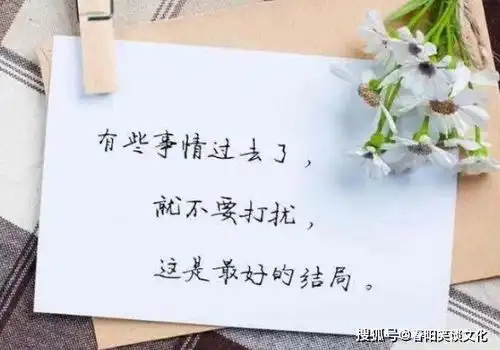 有些事情过去了，
就不要打扰，
这是最好的结局。
搜狐号@春阳笑谈文化